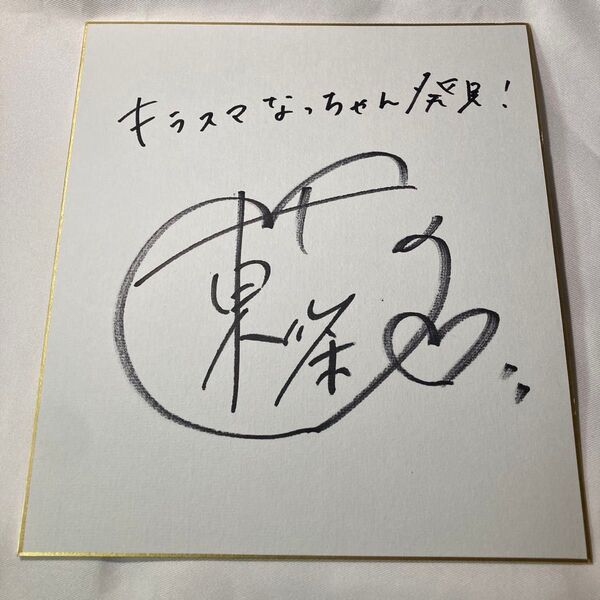 キラスマなっちゃん発見!
東条